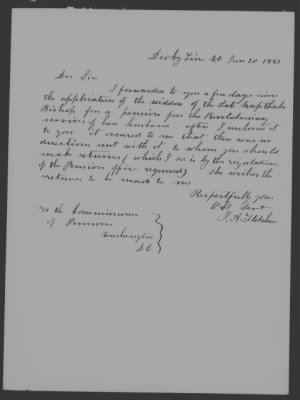 Derby Line Vt Jan 20 1851
Dear Sir
I forwarded to you a few days since
the application of the widow of the Late Napthale
Bishop for a pension for the Revolutionary
services of her husband after I inclosed it
to you it occured to me that there was no
directions sent with it to whom you should
make returns (which I see is by the regulations
of the Pension office required) She wishes the
return to be made to me
Respectfully your
Obt Servt
To the Commissioner
of Pensions
Washington
D.C.